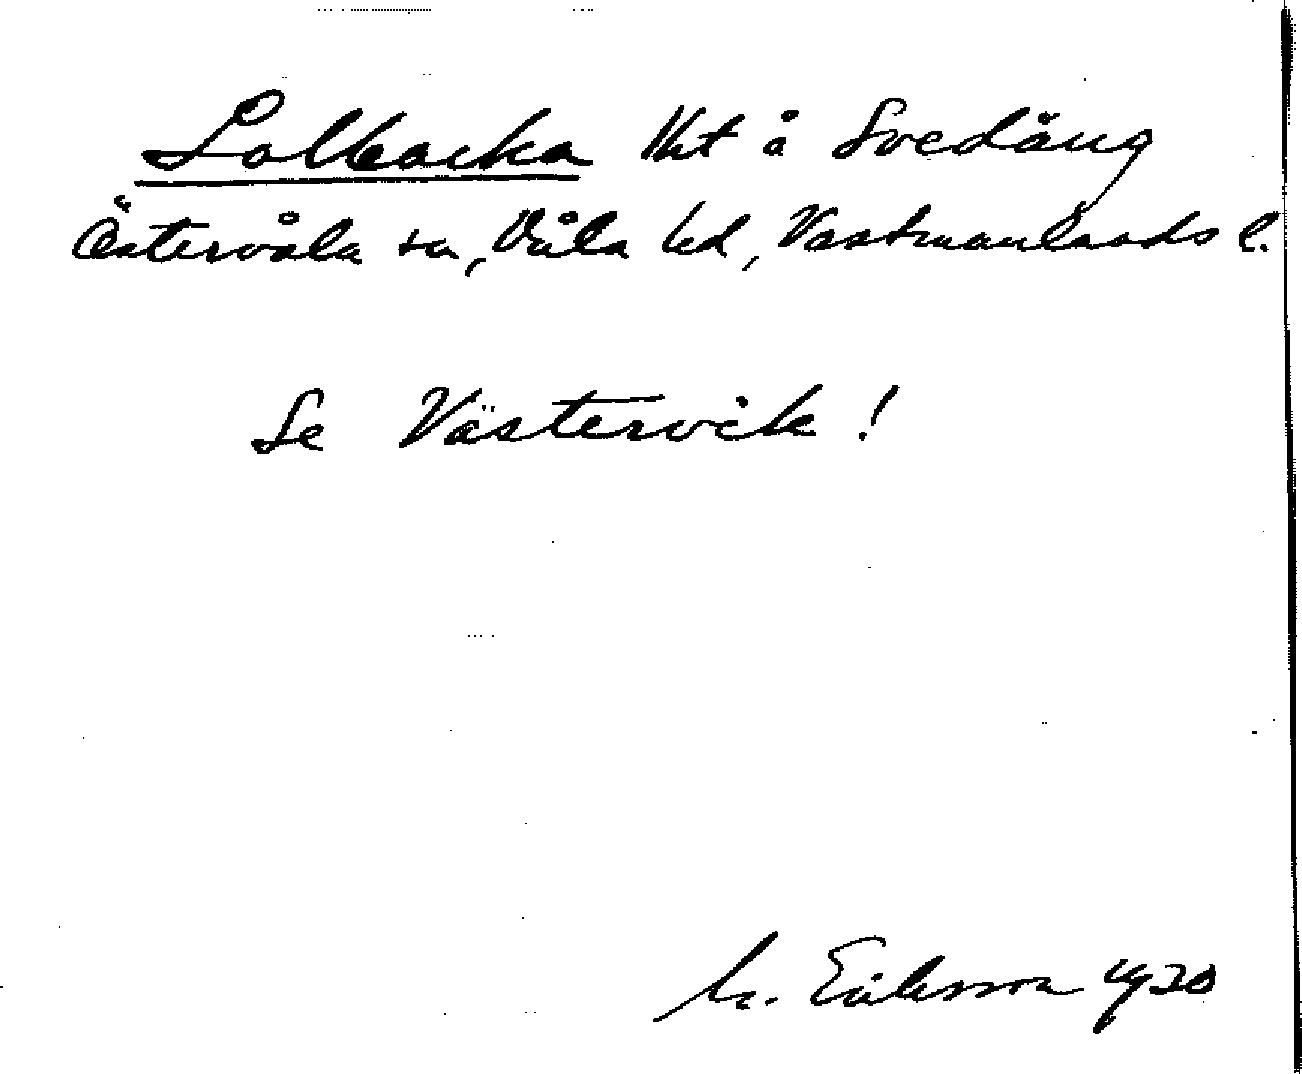 Solbacka lht å Svedäng
Östervåla sn, Våla hd, Västmanlands l.
Se Västervik !
M. Eriksson 1920